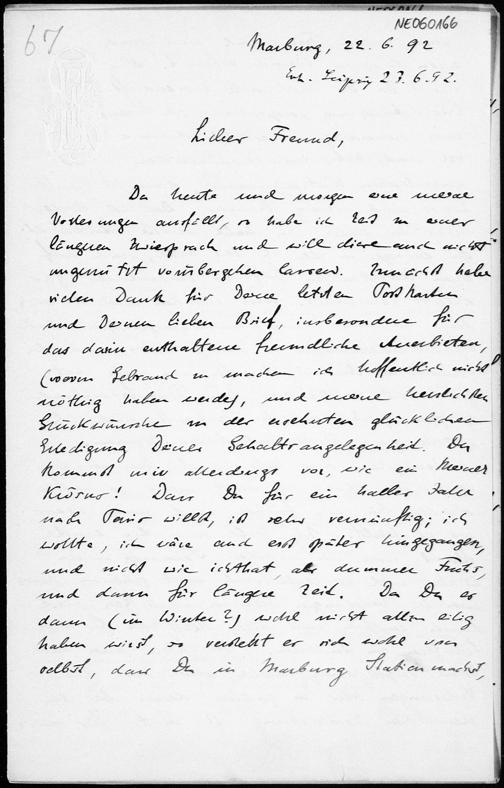 NE060166
67
Marburg, 22. 6. 92
Erh. Leipzig 27.6.92.
Lieber Freund,
Da heute und morgen eine meine
Vorlesungen ausfällt, so habe ich Zeit zu einer
längeren Zwiesprach und will diese auch nicht
ungenützt vorübergehen lassen. Zunächst habe
vielen Dank für Deine letzten Postkarten
und Deinen lieben Brief, insbesondere für
das darin enthaltene freundliche Anerbieten,
(wovon Gebrauch zu machen ich hoffentlich nicht
nöthig haben werde), und meine herzlichsten
Glückwünsche zu der nochsten glücklichen
Erledigung Deiner Gehaltsangelegenheit. Du
kommst mir allerdings vor, wie ein kleiner
Krösus! Dass Du für ein halbes Jahr
nach Paris willst, ist sehr vernünftig; ich
wollte, ich wäre auch erst später hingegangen,
und nicht wie ichs that, als dummer Fuchs,
und dann für längere Zeit. Da Du es
dann (im Winter?) wohl nicht allzu eilig
haben wirst, so versteht es sich wohl von
selbst, dass Du in Marburg Station machst,